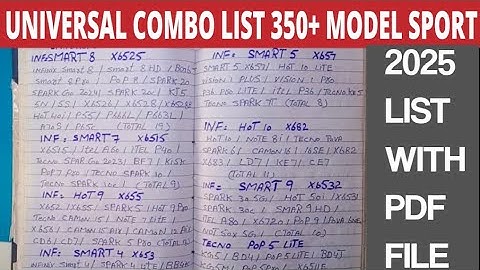 UNIVERSAL COMBO LIST 350+ MODEL SPORT
INFSMART 8 X6525
INFINIX SMART 8 / SMART 8 HD /
SMART 8 PRO / POP 8 / SPARK 20
SPARK GO 2024 / SPARK 20C / KJ5
5N / S51 / X6526 / X6528 / X6528B
HOT 40I / P55 / P661L / P663L /
A70S / P65C (TOTAL 19)
INF= SMART 7 X6515
X6515 / ITEL A60 / ITEL P40 /
TECNO SPARK GO 2023 / BF7 / KI5K
POP 7 PRO / TECNO SPARK 10 /
TECNO SPARK 10C / (TOTAL 9)
INF= HOT 9 X655
X652 / X655 / SPARK 5 / HOT 9 PRO
TECNO CAMON 15 / NOTE 7 LITE /
X680 / CAMON 15 AIR / CAMON 12 AIR
CD6 / CD7 / SPARK 5 PRO (TOTAL
INF= SMART 4 X653
INF= SMART 5 X657
SMART 5 X657 / HOT 10 LITE
VISION 1 PLUS / VISION 1 PRO
P36 PRO LITE / ITEL P36 / TECNO KE5
TECNO SPARK (TOTAL 8)
INF: HOT 10 X682
HOT 10 / NOTE 8I / TECNO POVA
SPARK 6 / CAMON 16 / 16SE / X682
X683 / LD7 / KE7 / CE7
(TOTAL 11)
INF= SMART 9 X6532
SPARK 30C / HOT 50I / X6531
SPARK GO 1 / SMART 9 HD /
ITEL A80 / X6720 / POP 9 /
HOT 50X 5G / (TOTAL 10)
TECNO POP 5 LITE
KG5 / BD4 / POP 5 LITE / BD4J
2025
LIST
WITH
PDF
FILE